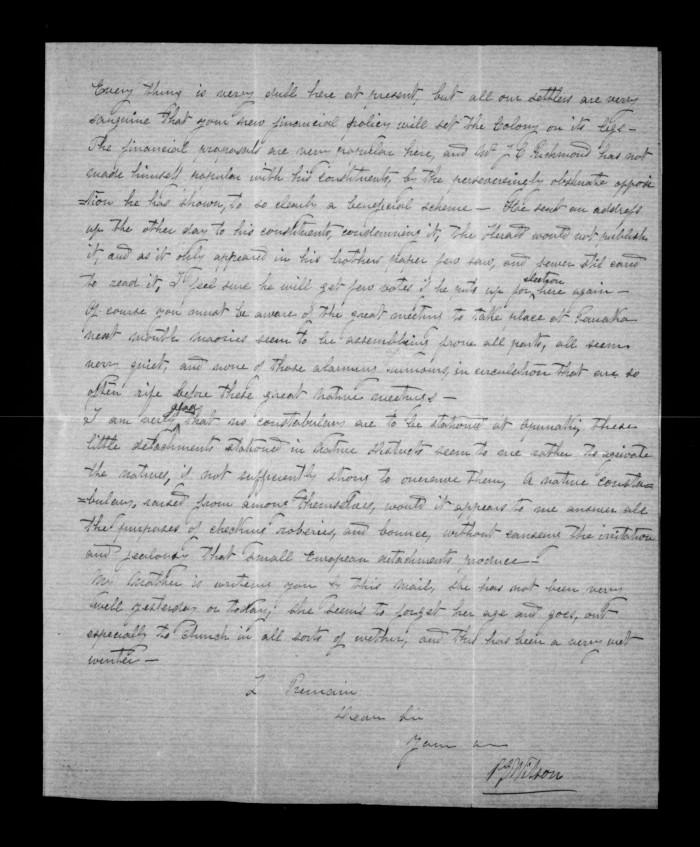 Every thing is very dull here at present, but all our settlers are very
sanguine that your new financial policy will set the Colony on its legs —
The financial proposals are very popular here, and Mr J C Richmond has not
made himself popular with his constituents, by the perseveringly obstinate opposi
=tion he has shown, to so clearly a beneficial scheme — He sent an address
up the other day to his constituents, condemning it, the Herald would not publish
it, and as it only appeared in his brothers paper few saw, and fewer stil cared
to read it, I feel sure he will get few votes if he puts up for election here again —
Of course you must be aware of the great meeting to take place at
next month maories seem to be assembling from all parts, all seem
very quiet, and none of those alarming rumours, in circulation that are so
often rife before these great native meetings —
I am very glad that no constabulary are to be stationed at Opunaki, these
little detachments stationed in native districts seem to me rather to
the natives, if not sufficiently strong to overawe them, A native consta=
=bulary, raised from among themselves, would it appears to me answer all
the purposes of checking roberies, and bounce, without causeing the iritation
and jealousy that small European detachments, produce —
My Mother is writeing you by this mail, she has not been very
well yesterday or today; She seems to forget her age and goes, out
especially to Church in all sorts of wether, and this has been a very wet
winter —
I Remain
Dear Sir
Yours
Wilson